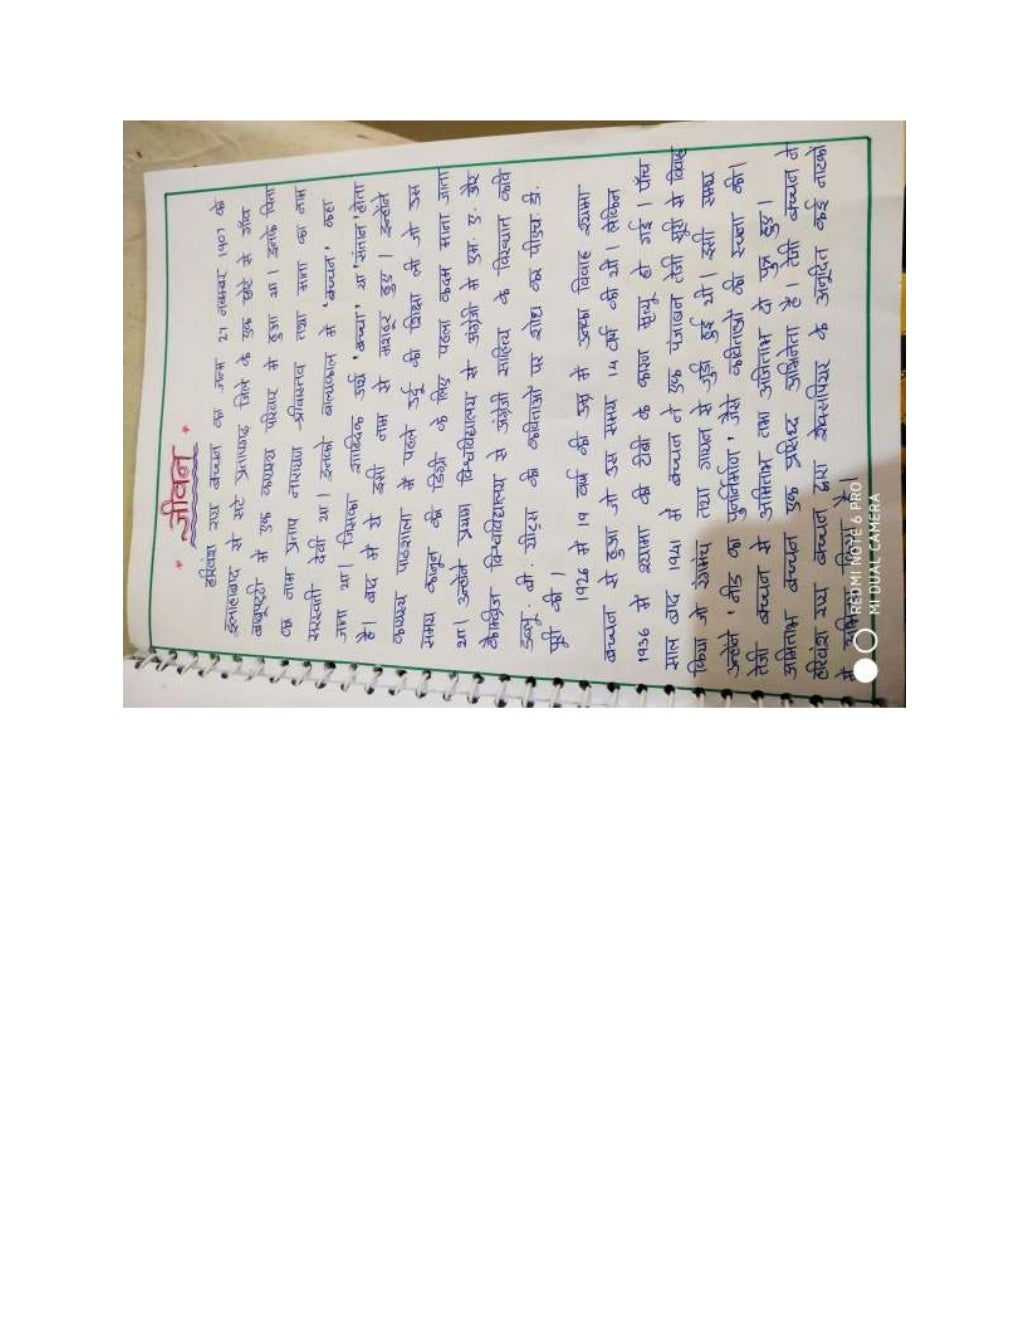 * जीवन *
हरिवंश राय बच्चन का जन्म 27 नवम्बर 1907 के
इलाहाबाद से सटे प्रतापगढ़ जिले के एक छोटे से गाँव
बाबूपट्टी में एक कायस्थ परिवार में हुआ था। इनके पिता
का नाम प्रताप नारायण श्रीवास्तव तथा माता का नाम
सरस्वती देवी था। इनको बाल्यकाल में 'बच्चन' कहा
जाता था। जिसका शाब्दिक अर्थ 'बच्चा' या 'संतान' होता
है। बाद में ये इसी नाम से मशहूर हुए। इन्होंने
कायस्थ पाठशाला में पहले उर्दू की शिक्षा ली जो उस
समय कानून की डिग्री के लिए पहला कदम माना जाता
था। उन्होंने प्रयाग विश्वविद्यालय से अंग्रेजी में एम. ए. और
कैम्ब्रिज विश्वविद्यालय से अंग्रेजी साहित्य के विख्यात कवि
डब्लू. बी. यीट्स की कविताओं पर शोध कर पीएच. डी.
पूरी की।
1926 में 19 वर्ष की उम्र में उनका विवाह श्यामा
बच्चन से हुआ जो उस समय 14 वर्ष की थी। लेकिन
1936 में श्यामा की टीबी के कारण मृत्यू हो गई। पाँच
साल बाद 1941 में बच्चन ने एक पंजाबन तेजी सूरी से विवाह
किया जो रंगमंच तथा गायन से जुड़ी हुई थी। इसी समय
उन्होंने 'नीड का पुनर्निर्माण' जैसे कविताओं की रचना की।
तेजी बच्चन से अमिताभ तथा अजिताभ दो पुत्र हुए।
अमिताभ बच्चन एक प्रसिध्द अभिनेता है। तेजी बच्चन ने
हरिवंश राय बच्चन द्वारा शेक्सपियर के अनूदित कई नाटकों
में है।
REDMI NOTE 6 PRO
MI DUAL CAMERA